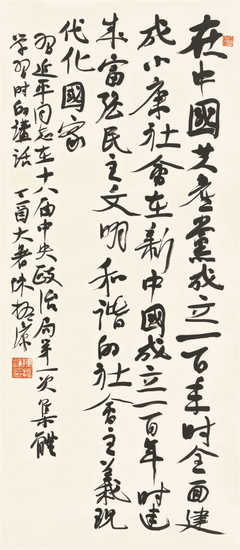 在中國共產黨成立一百年时全面建
成小康社會在新中國成立一百年时建
成富强民主文明和谐的社會主義现
代化國家
習近平同志在十八届中央政治局第一次集體
學習时的講話 丁酉大暑陈振濂